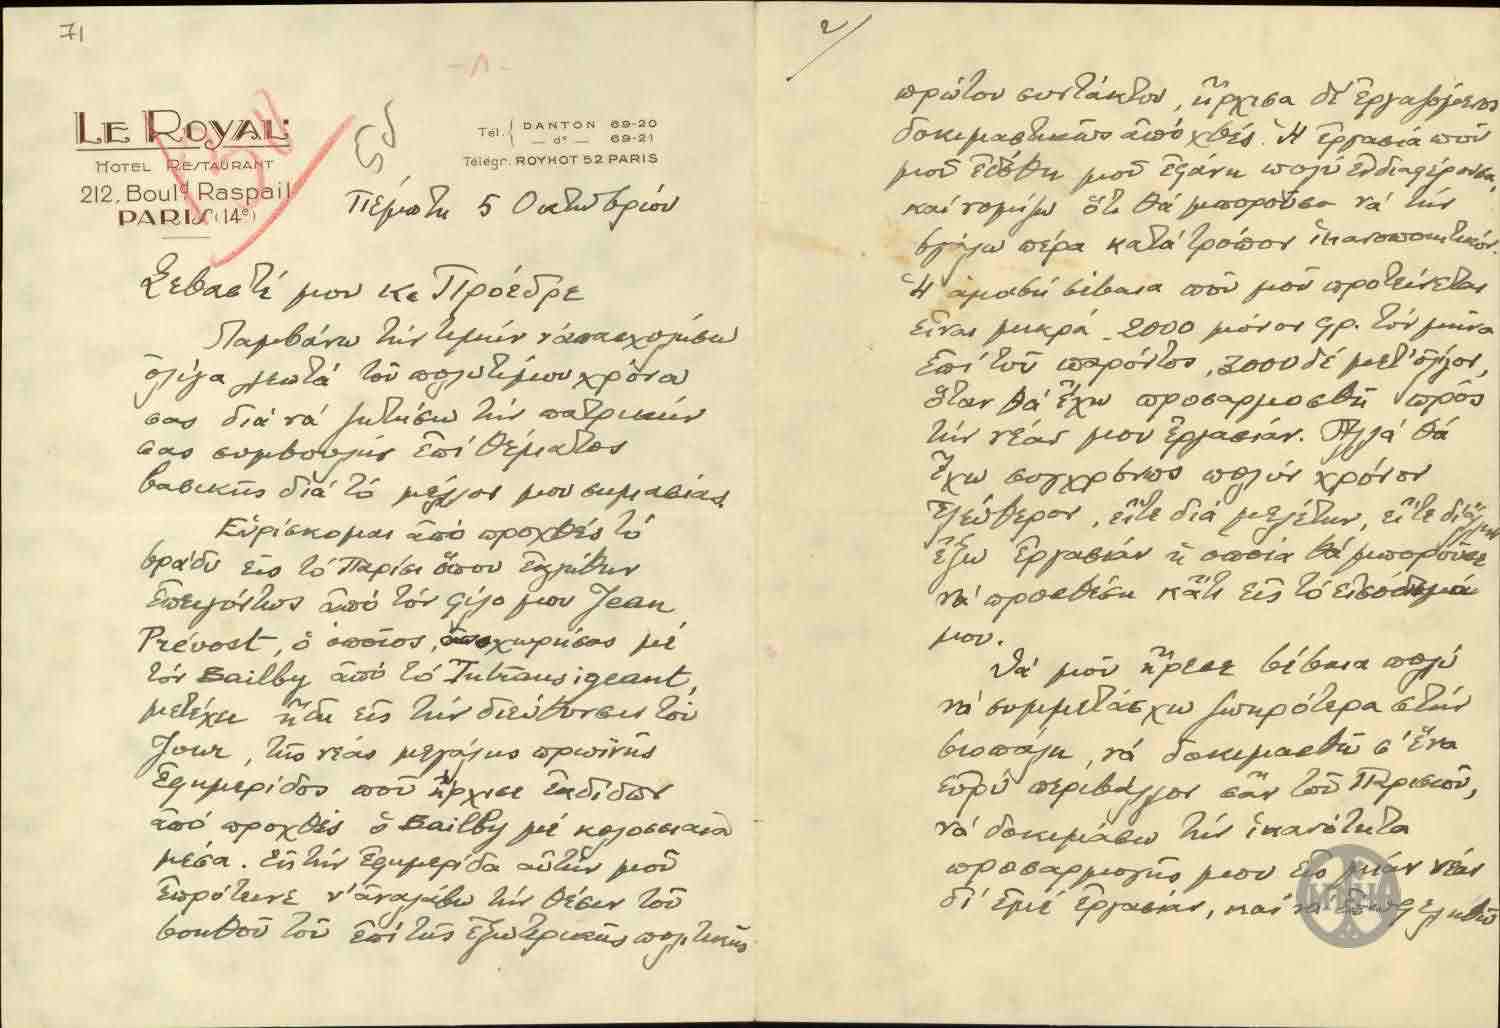 71
LE ROYAL
HOTEL RESTAURANT
212, Boul.d Raspail
PARIS (14e)
Tél. DANTON 69-20
— d° — 69-21
Télégr. ROYHOT 52 PARIS
Πέμπτη 5 Οκτωβρίου
Σεβαστέ μου Κε Πρόεδρε
Λαμβάνω την τιμήν ν' απασχολήσω
ολίγα λεπτά του πολυτίμου χρόνου
σας διά νά ζητήσω την πατρικήν
σας συμβουλήν επί θέματος
βασικής διά τό μέλλον μου σημασίας.
Ευρίσκομαι από προχθές τό
βράδυ εις τό Παρίσι όπου εκλήθην
επειγόντως από τόν φίλο μου Jean
Prévost, ό οποίος, αποχωρήσας μέ
τόν Bailby από τό Intransigeant,
μετέχει ήδη εις την διεύθυνσιν του
Jour, της νέας μεγάλης πρωϊνής
εφημερίδος που ήρχισε εκδίδων
από προχθές ό Bailby μέ κολοσσιαία
μέσα. Εις την εφημερίδα αυτήν μου
επρότεινε ν' αναλάβω την θέσιν του
βοηθού του επί της εξωτερικής πολιτικής
2/
πρώτου συντάκτου, ήρχισα δέ εργαζόμενος
δοκιμαστικώς από χθές. Ή εργασία που
μου εδόθη μου εφάνη πολύ ενδιαφέρουσα,
καί νομίζω ότι θά μπορούσα νά την
βγάλω πέρα κατά τρόπον ικανοποιητικόν.
Ή αμοιβή βέβαια που μου προτείνεται
είναι μικρά - 2000 μόνον φρ. τόν μήνα
επί του παρόντος, 3000 δέ μετ' ολίγον,
όταν θά έχω προσαρμοσθή πρός
την νέαν μου εργασίαν. Αλλά θά
έχω συγχρόνως πολύν χρόνον
ελεύθερον, είτε διά μελέτην, είτε δι' άλλην
έξω εργασίαν ή οποία θά μπορούσε
νά προσθέση κάτι εις τό εισόδημά
μου.
Θά μου ήρεσε βέβαια πολύ
νά συμμετάσχω ζωηρότερα στην
βιοπάλη, νά δοκιμασθώ σ' ένα
ευρύ περιβάλλον σαν του Παρισιού,
νά δοκιμάσω την ικανότητα
προσαρμογής μου εις μίαν νέαν
δι' εμέ εργασίαν, καί νά επωφεληθώ